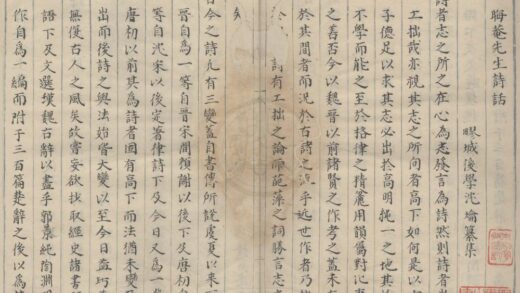 晦菴先生詩話
城後學沈爚纂集
詩者志之所之在心為志發言為詩然則詩者
工拙哉亦視其志之所向者高下如何是以
子德足以求其志必出於高明純一之地其於
不學而能之至於格律之精麄用韻屬對比
之善否今以魏晉以前諸賢之作考之蓋未有
於其間者而況於古詩之流乎近世作者乃
詩有工拙之論而葩藻之詞勝言志
矣
古今之詩凡有三變蓋自書傳所記虞夏以來
晉自為一等自晉宋間顔謝以後下及唐初自
等自沈宋以後定著律詩下及今日又為一
唐初以前其為詩者固有高下而法猶未變
出而後詩之與法始皆大變以至今日益巧
無復古人之風矣故嘗妄欲抄取經史諸書
語下及文選漢魏古辭以盡乎郭景純陶淵明
作自為一編而附于三百篇楚辭之後以為